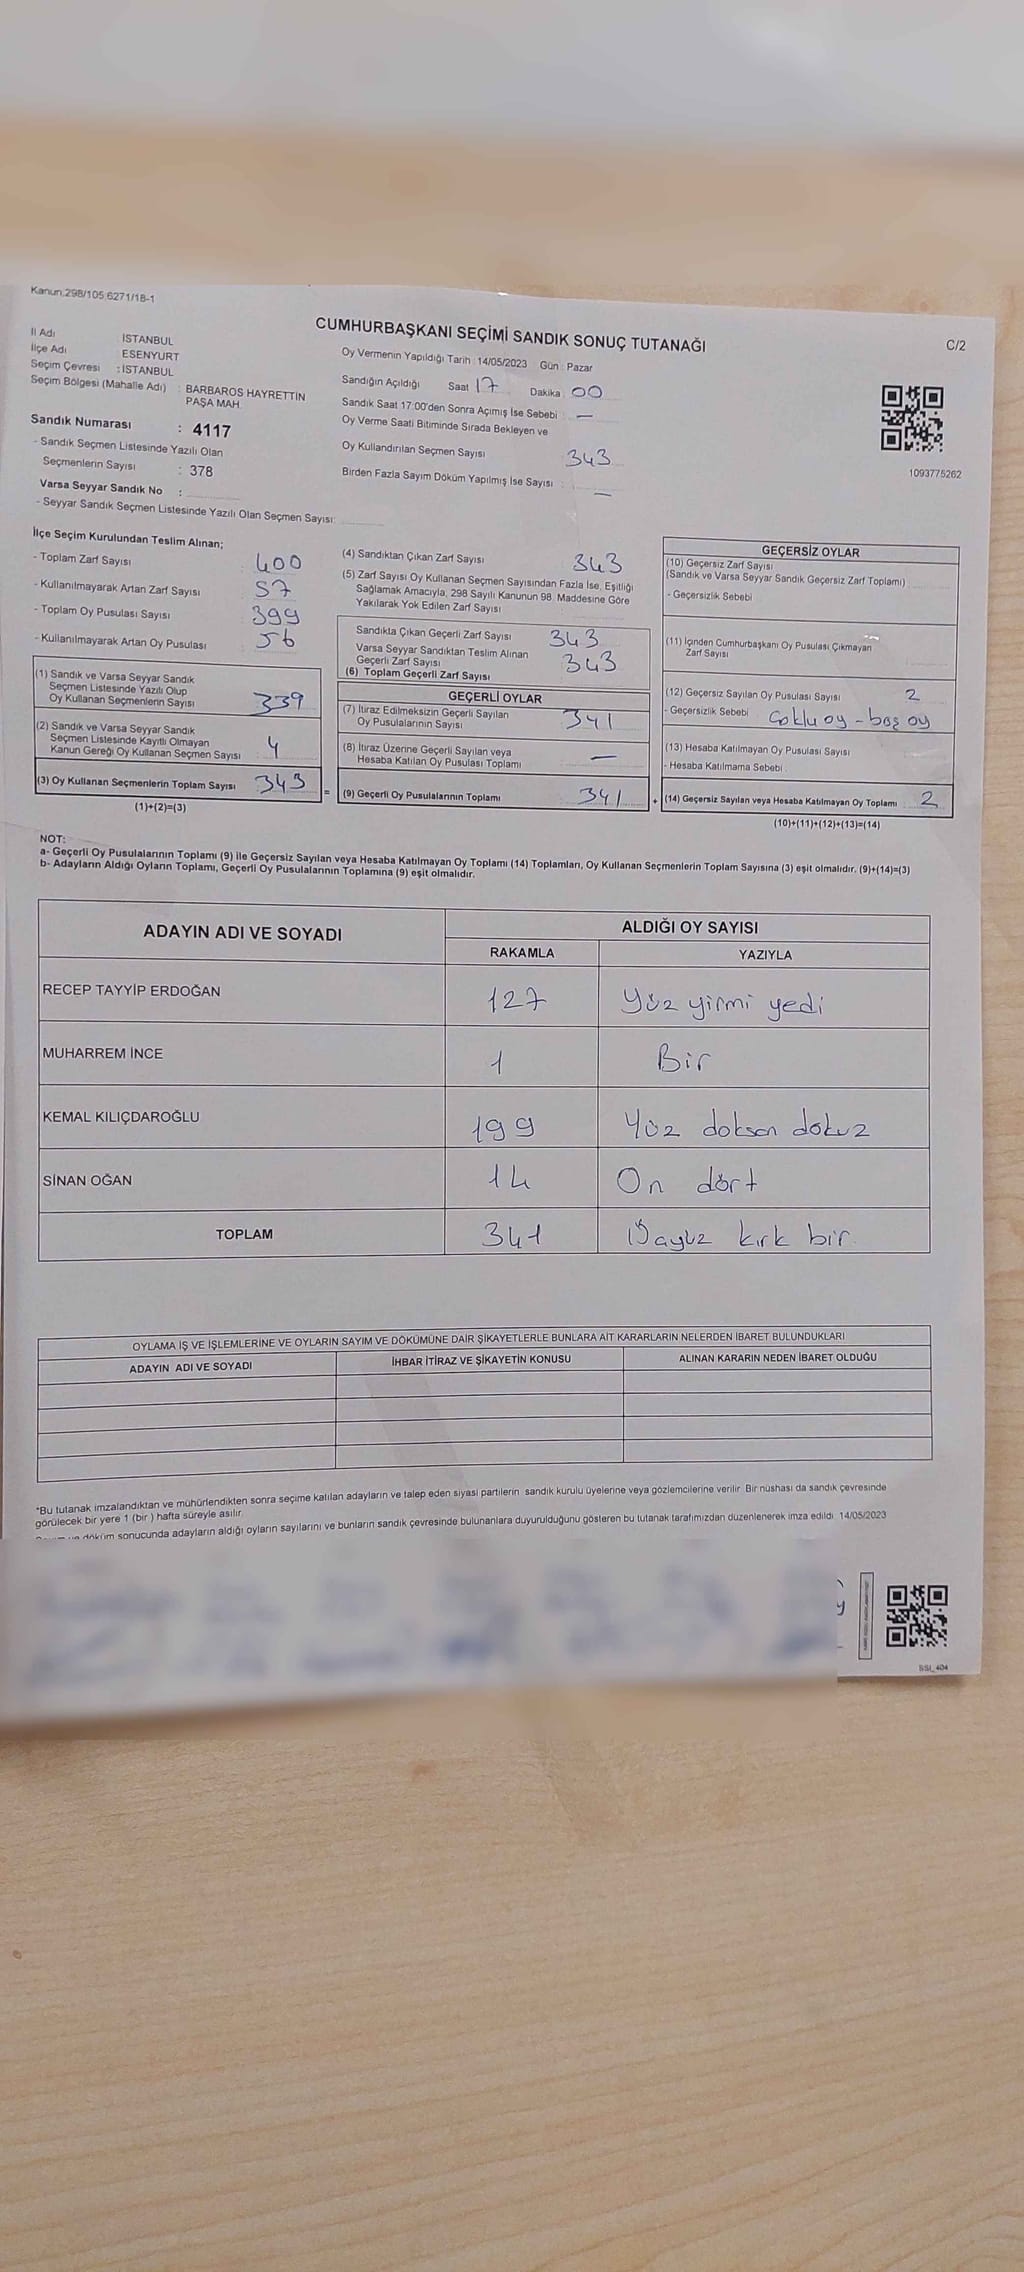 Kanun:298/105;6271/18-1
CUMHURBAŞKANI SEÇİMİ SANDIK SONUÇ TUTANAĞI
C/2
İl Adı : İSTANBUL
İlçe Adı : ESENYURT
Seçim Çevresi : İSTANBUL
Seçim Bölgesi (Mahalle Adı) : BARBAROS HAYRETTİN
PAŞA MAH.
Sandık Numarası : 4117
- Sandık Seçmen Listesinde Yazılı Olan
Seçmenlerin Sayısı : 378
Varsa Seyyar Sandık No :
- Seyyar Sandık Seçmen Listesinde Yazılı Olan Seçmen Sayısı:
Oy Vermenin Yapıldığı Tarih : 14/05/2023 Gün : Pazar
Sandığın Açıldığı Saat 17 Dakika 00
Sandık Saat 17:00'den Sonra Açımış İse Sebebi : —
Oy Verme Saati Bitiminde Sırada Bekleyen ve
Oy Kullandırılan Seçmen Sayısı : 343
Birden Fazla Sayım Döküm Yapılmış İse Sayısı : —
1093775262
İlçe Seçim Kurulundan Teslim Alınan;
- Toplam Zarf Sayısı : 400
- Kullanılmayarak Artan Zarf Sayısı : 57
- Toplam Oy Pusulası Sayısı : 399
- Kullanılmayarak Artan Oy Pusulası : 56
(1) Sandık ve Varsa Seyyar Sandık
Seçmen Listesinde Yazılı Olup
Oy Kullanan Seçmenlerin Sayısı 339
(2) Sandık ve Varsa Seyyar Sandık
Seçmen Listesinde Kayıtlı Olmayan
Kanun Gereği Oy Kullanan Seçmen Sayısı 4
(3) Oy Kullanan Seçmenlerin Toplam Sayısı 343
(1)+(2)=(3)
(4) Sandıktan Çıkan Zarf Sayısı 343
(5) Zarf Sayısı Oy Kullanan Seçmen Sayısından Fazla İse, Eşitliği
Sağlamak Amacıyla, 298 Sayılı Kanunun 98. Maddesine Göre
Yakılarak Yok Edilen Zarf Sayısı
Sandıkta Çıkan Geçerli Zarf Sayısı 343
Varsa Seyyar Sandıktan Teslim Alınan
Geçerli Zarf Sayısı 343
(6) Toplam Geçerli Zarf Sayısı
GEÇERLİ OYLAR
(7) İtiraz Edilmeksizin Geçerli Sayılan
Oy Pusulalarının Sayısı 341
(8) İtiraz Üzerine Geçerli Sayılan veya
Hesaba Katılan Oy Pusulası Toplamı —
= (9) Geçerli Oy Pusulalarının Toplamı 341
GEÇERSİZ OYLAR
(10) Geçersiz Zarf Sayısı
(Sandık ve Varsa Seyyar Sandık Geçersiz Zarf Toplamı)
- Geçersizlik Sebebi
(11) İçinden Cumhurbaşkanı Oy Pusulası Çıkmayan
Zarf Sayısı
(12) Geçersiz Sayılan Oy Pusulası Sayısı 2
- Geçersizlik Sebebi Çoklu oy - boş oy
(13) Hesaba Katılmayan Oy Pusulası Sayısı
- Hesaba Katılmama Sebebi :
+ (14) Geçersiz Sayılan veya Hesaba Katılmayan Oy Toplamı 2
(10)+(11)+(12)+(13)=(14)
NOT:
a- Geçerli Oy Pusulalarının Toplamı (9) ile Geçersiz Sayılan veya Hesaba Katılmayan Oy Toplamı (14) Toplamları, Oy Kullanan Seçmenlerin Toplam Sayısına (3) eşit olmalıdır. (9)+(14)=(3)
b- Adayların Aldığı Oyların Toplamı, Geçerli Oy Pusulalarının Toplamına (9) eşit olmalıdır.
ADAYIN ADI VE SOYADI ALDIĞI OY SAYISI
RAKAMLA YAZIYLA
RECEP TAYYİP ERDOĞAN 127 Yüz yirmi yedi
MUHARREM İNCE 1 Bir
KEMAL KILIÇDAROĞLU 199 Yüz doksan dokuz
SİNAN OĞAN 14 On dört
TOPLAM 341 Üçyüz kırk bir
OYLAMA İŞ VE İŞLEMLERİNE VE OYLARIN SAYIM VE DÖKÜMÜNE DAİR ŞİKAYETLERLE BUNLARA AİT KARARLARIN NELERDEN İBARET BULUNDUKLARI
ADAYIN ADI VE SOYADI İHBAR İTİRAZ VE ŞİKAYETİN KONUSU ALINAN KARARIN NEDEN İBARET OLDUĞU
*Bu tutanak imzalandıktan ve mühürlendikten sonra seçime katılan adayların ve talep eden siyasi partilerin sandık kurulu üyelerine veya gözlemcilerine verilir. Bir nüshası da sandık çevresinde
görülecek bir yere 1 (bir ) hafta süreyle asılır.
döküm sonucunda adayların aldığı oyların sayılarını ve bunların sandık çevresinde bulunanlara duyurulduğunu gösteren bu tutanak tarafımızdan düzenlenerek imza edildi. 14/05/2023